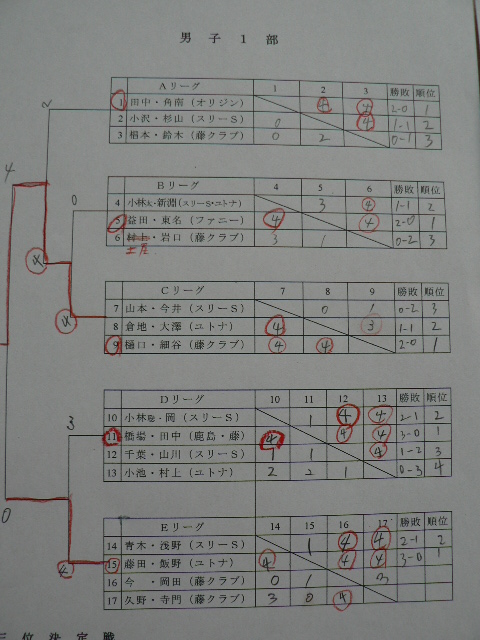 男子1部
Aリーグ 1 2 3 勝敗 順位
1 田中・角南(オリジン) 4 4 2-0 1
2 小沢・杉山(スリーS) 0 4 1-1 2
3 椙本・鈴木(藤クラブ) 0 2 0-1 3
Bリーグ 4 5 6 勝敗 順位
4 小林太・新淵(スリーS・ユトナ) 3 4 1-1 2
5 益田・東名(ファニー) 4 4 2-0 1
6 岩口(藤クラブ) 3 1 0-2 3
土居
Cリーグ 7 8 9 勝敗 順位
7 山本・今井(スリーS) 0 1 0-2 3
8 倉地・大澤(ユトナ) 4 3 1-1 2
9 樋口・細谷(藤クラブ) 4 4 2-0 1
Dリーグ 10 11 12 13 勝敗 順位
10 小林・岡(スリーS) 1 4 4 2-1 2
11 橋場・田中(鹿島・藤) 4 4 4 3-0 1
12 千葉・山川(スリーS) 1 1 4 1-2 3
13 小池・村上(ユトナ) 2 2 1 0-3 4
Eリーグ 14 15 16 17 勝敗 順位
14 青木・浅野(スリーS) 1 4 4 2-1 2
15 藤田・飯野(ユトナ) 4 4 4 3-0 1
16 今・岡田(藤クラブ) 0 1 3
17 久野・寺門(藤クラブ) 3 0 4
2
4
0
3
0
4
三位決定戦